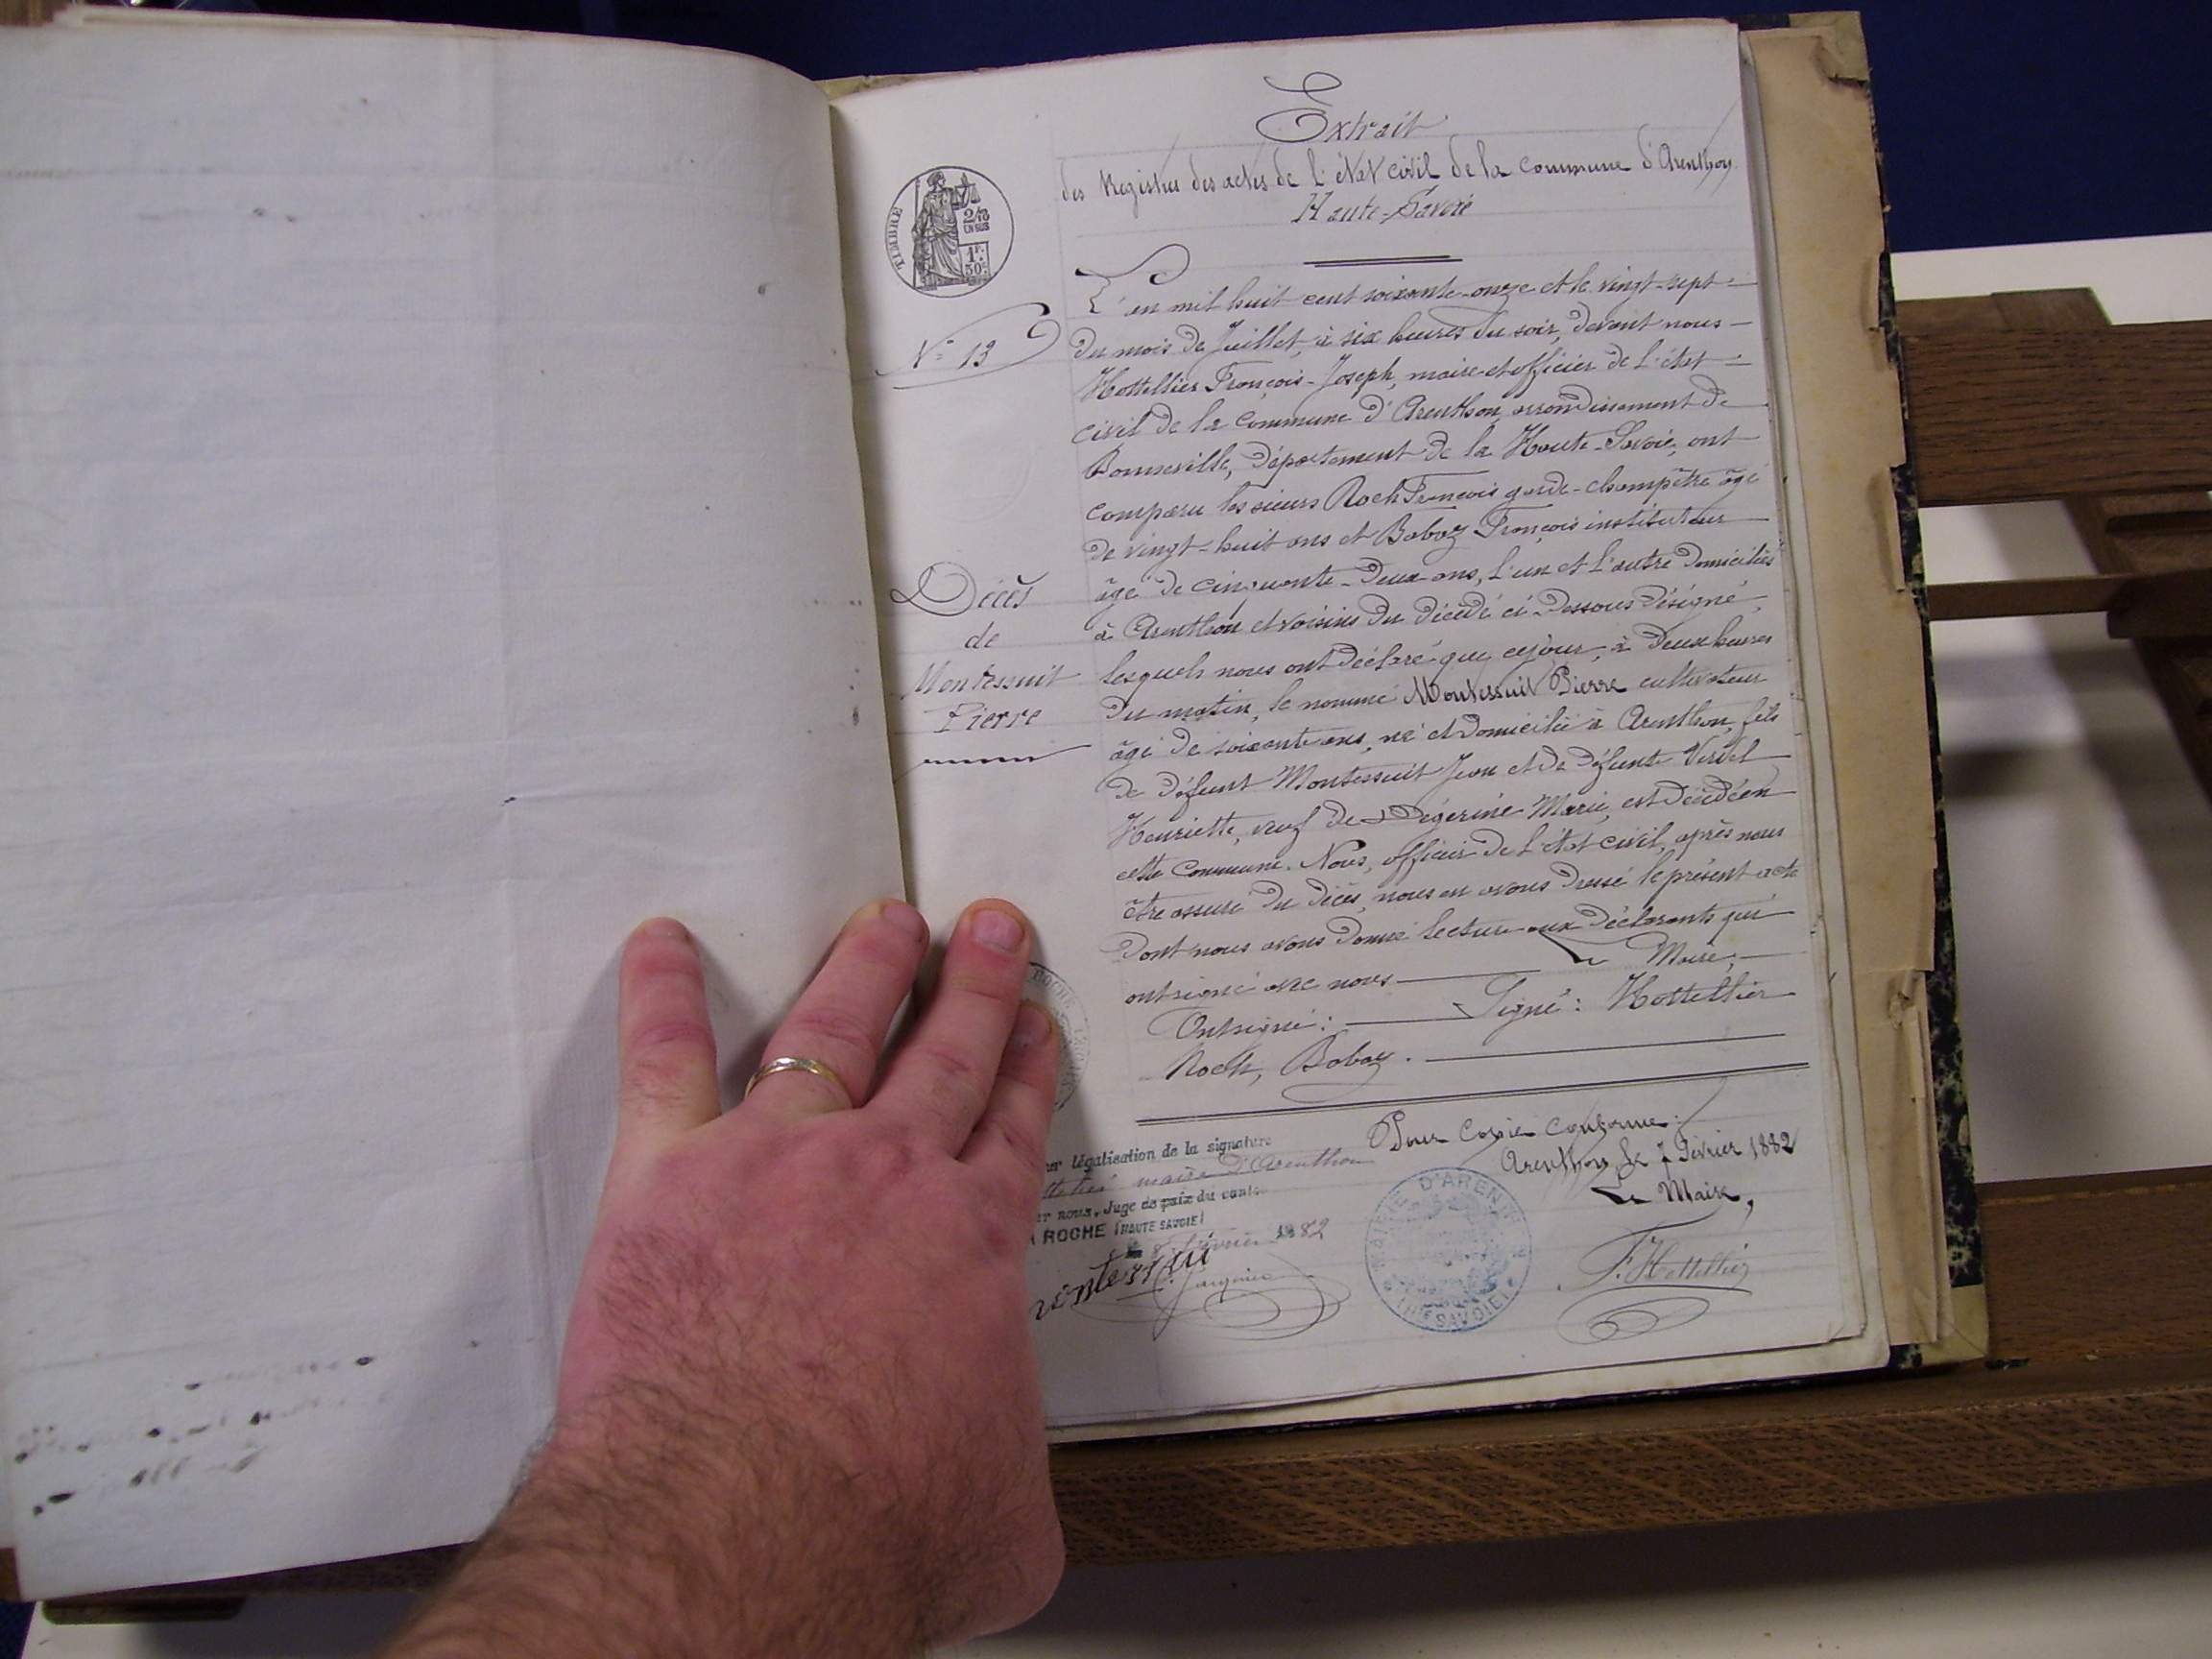 Extrait
des Registres des actes de l'état civil de la commune d'Arenthon
Haute-Savoie
TIMBRE
2/10
EN SUS
1F.
50c
N° 13
L'an mil huit cent soixante-onze et le vingt-sept
du mois de Juillet, à six heures du soir, devant nous
Hottellier François-Joseph, maire et officier de l'état
civil de la commune d'Arenthon, arrondissement de
Bonneville, département de la Haute-Savoie, ont
comparu les sieurs Roch François garde-champêtre âgé
de vingt-huit ans et Baboz François instituteur
âgé de cinquante-deux ans, l'un et l'autre domiciliés
à Arenthon et voisins du décédé ci-dessous désigné,
lesquels nous ont déclaré que ce jour, à deux heures
du matin, le nommé Montessuit Pierre cultivateur
âgé de soixante ans, né et domicilié à Arenthon, fils
de défunt Montessuit Jean et de défunte Verdel
Henriette, veuf de Pégérine Marie, est décédé en
cette commune. Nous, officier de l'état civil, après nous
être assuré du décès, nous en avons dressé le présent acte
dont nous avons donné lecture aux déclarants qui
ont signé avec nous
Le Maire,
Ont signé :
Signé : Hottellier
Roch, Baboz.
Décès
de
Montessuit
Pierre
Pour copie conforme :
Arenthon, le 7 Février 1882
Le Maire,
F. Hottellier
MAIRIE D'AREN
SAVOIE
légalisation de la signature
maire d'Arenthon
nous, Juge de paix du canton
ROCHE (HAUTE SAVOIE)
8 février 1882